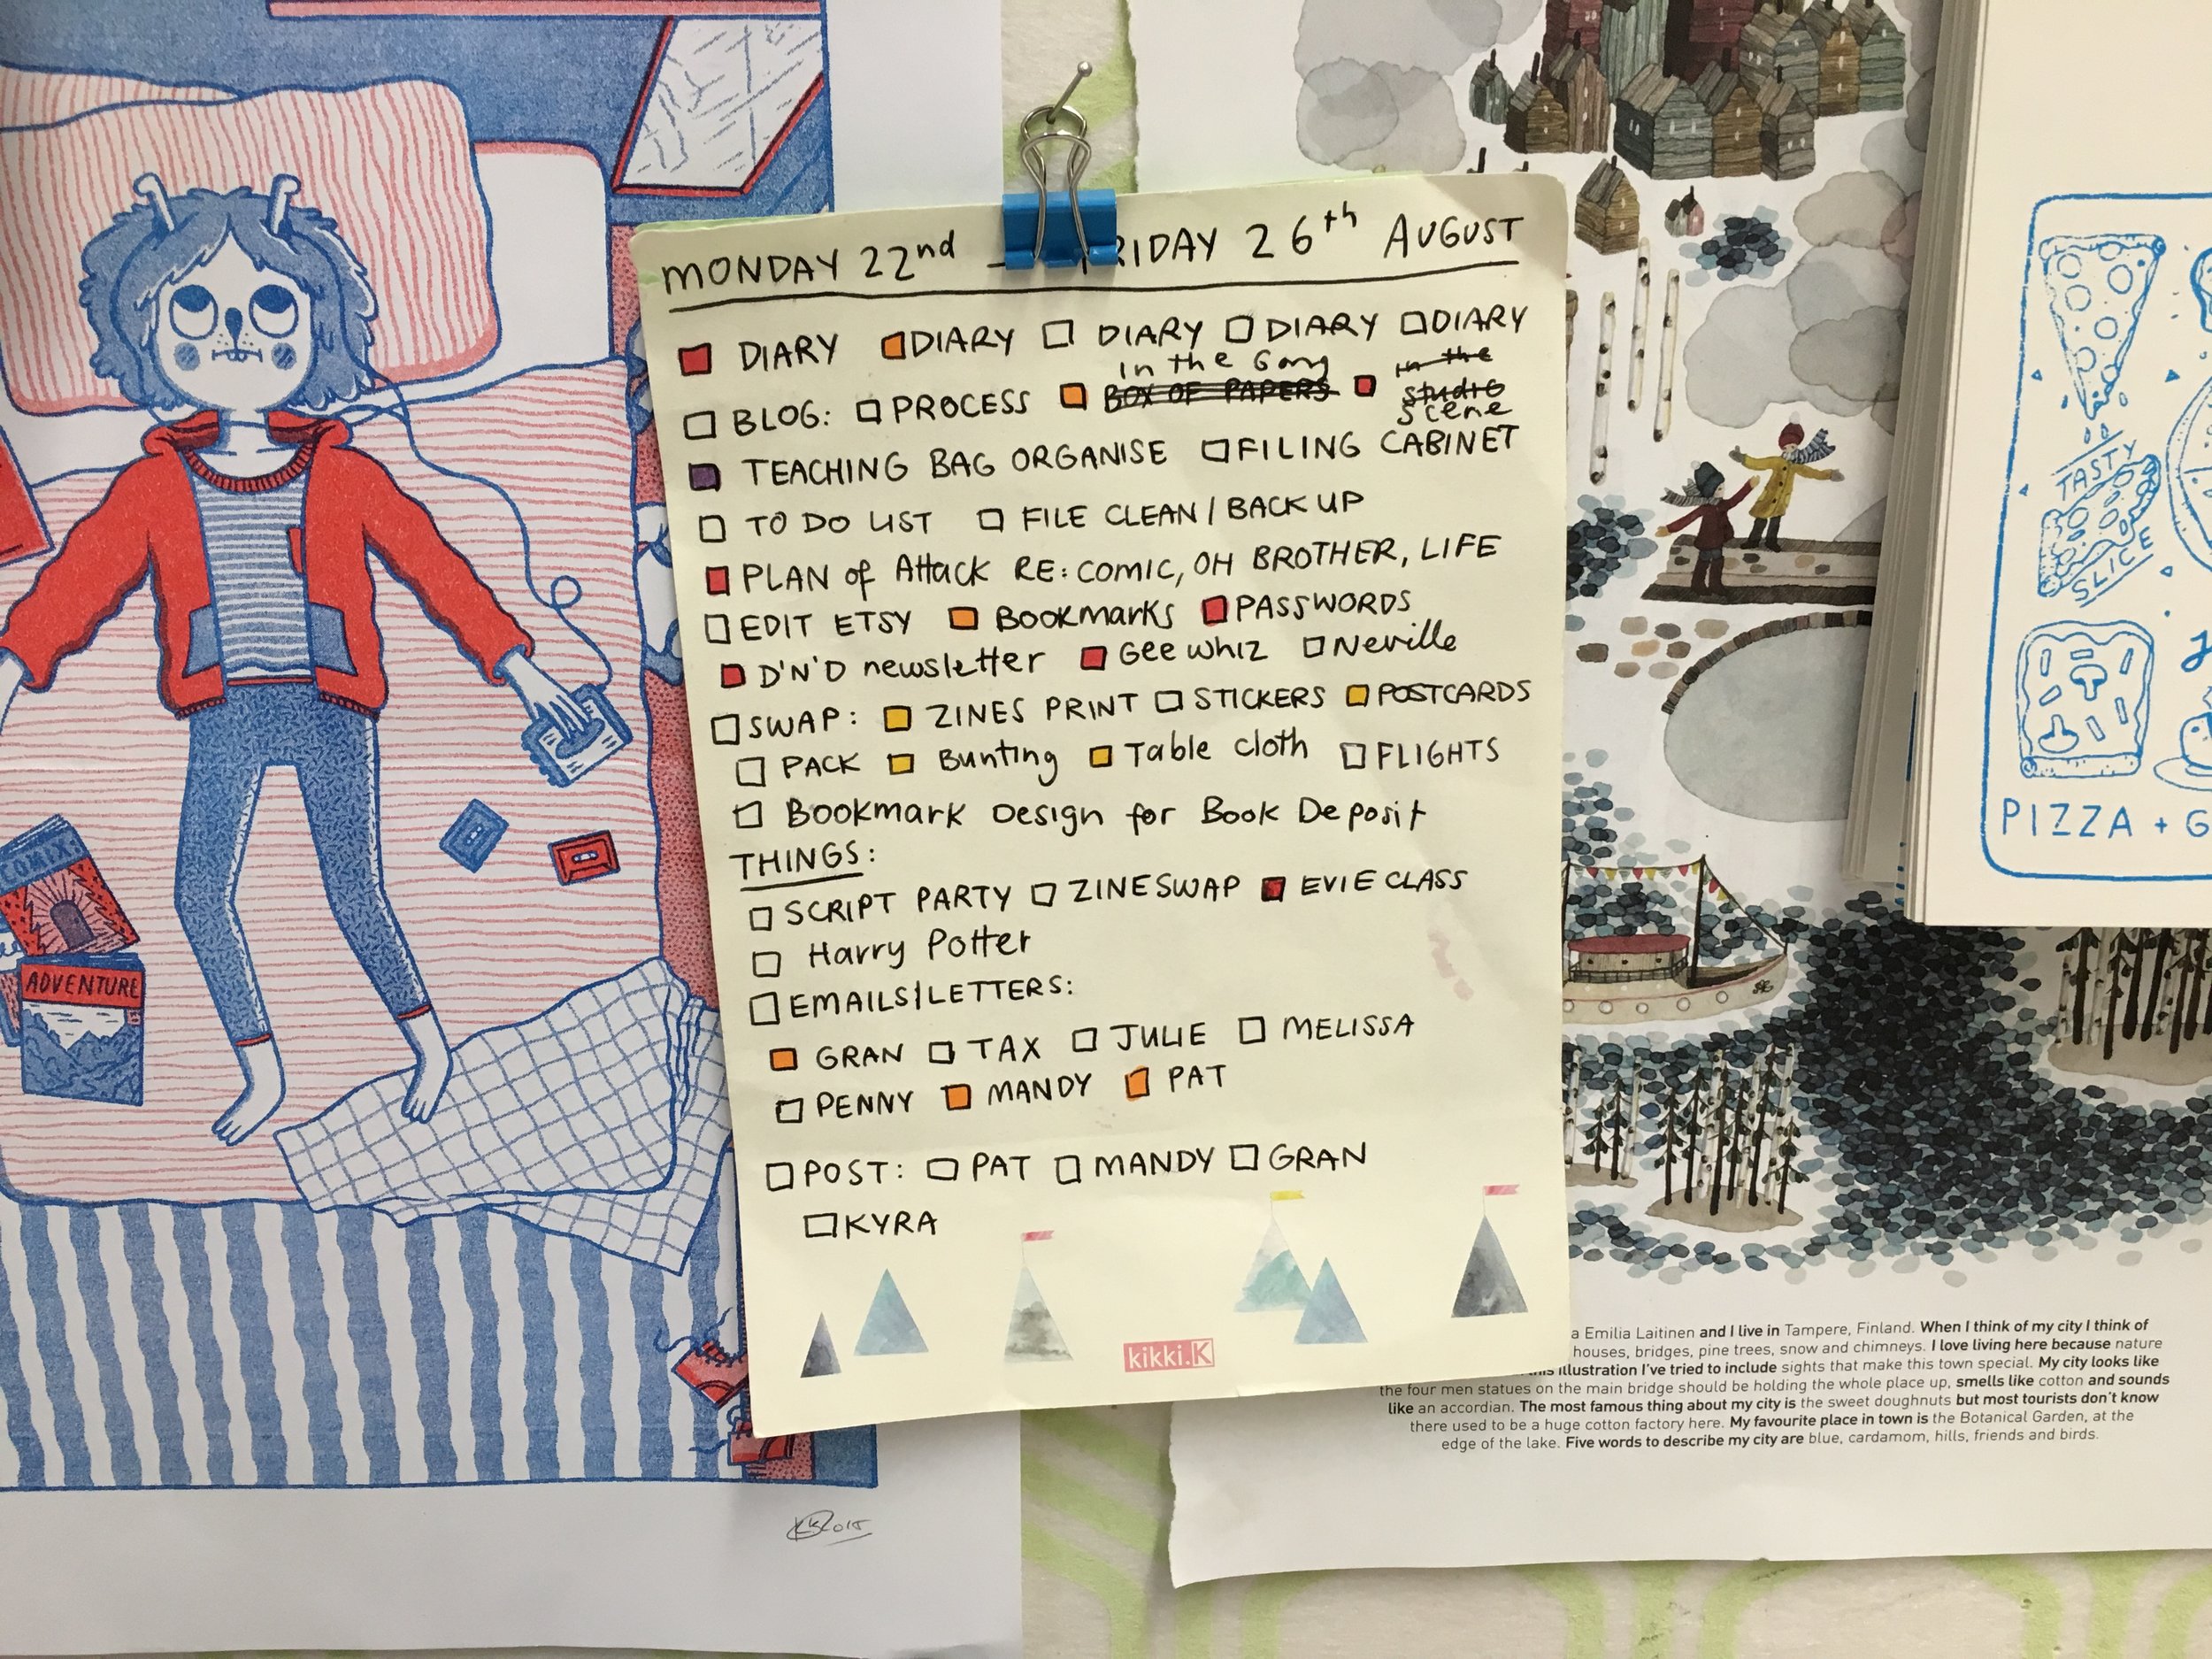 MONDAY 22nd – FRIDAY 26th AUGUST
DIARY DIARY DIARY DIARY DIARY
in the Gong in the
BLOG: PROCESS BOX OF PAPERS studio
scene
TEACHING BAG ORGANISE FILING CABINET
TO DO LIST FILE CLEAN / BACK UP
PLAN of Attack RE: COMIC, OH BROTHER, LIFE
EDIT ETSY Bookmarks PASSWORDS
D'N'D newsletter Gee whiz Neville
SWAP: ZINES PRINT STICKERS POSTCARDS
PACK Bunting Table cloth FLIGHTS
Bookmark Design for Book Deposit
THINGS:
SCRIPT PARTY ZINESWAP EVIE CLASS
Harry Potter
EMAILS/LETTERS:
GRAN TAX JULIE MELISSA
PENNY MANDY PAT
POST: PAT MANDY GRAN
KYRA
kikki.K
COMIX
ADVENTURE
2015
TASTY
SLICE
PIZZA + G
a Emilia Laitinen and I live in Tampere, Finland. When I think of my city I think of
houses, bridges, pine trees, snow and chimneys. I love living here because nature
this illustration I've tried to include sights that make this town special. My city looks like
the four men statues on the main bridge should be holding the whole place up, smells like cotton and sounds
like an accordian. The most famous thing about my city is the sweet doughnuts but most tourists don't know
there used to be a huge cotton factory here. My favourite place in town is the Botanical Garden, at the
edge of the lake. Five words to describe my city are blue, cardamom, hills, friends and birds.